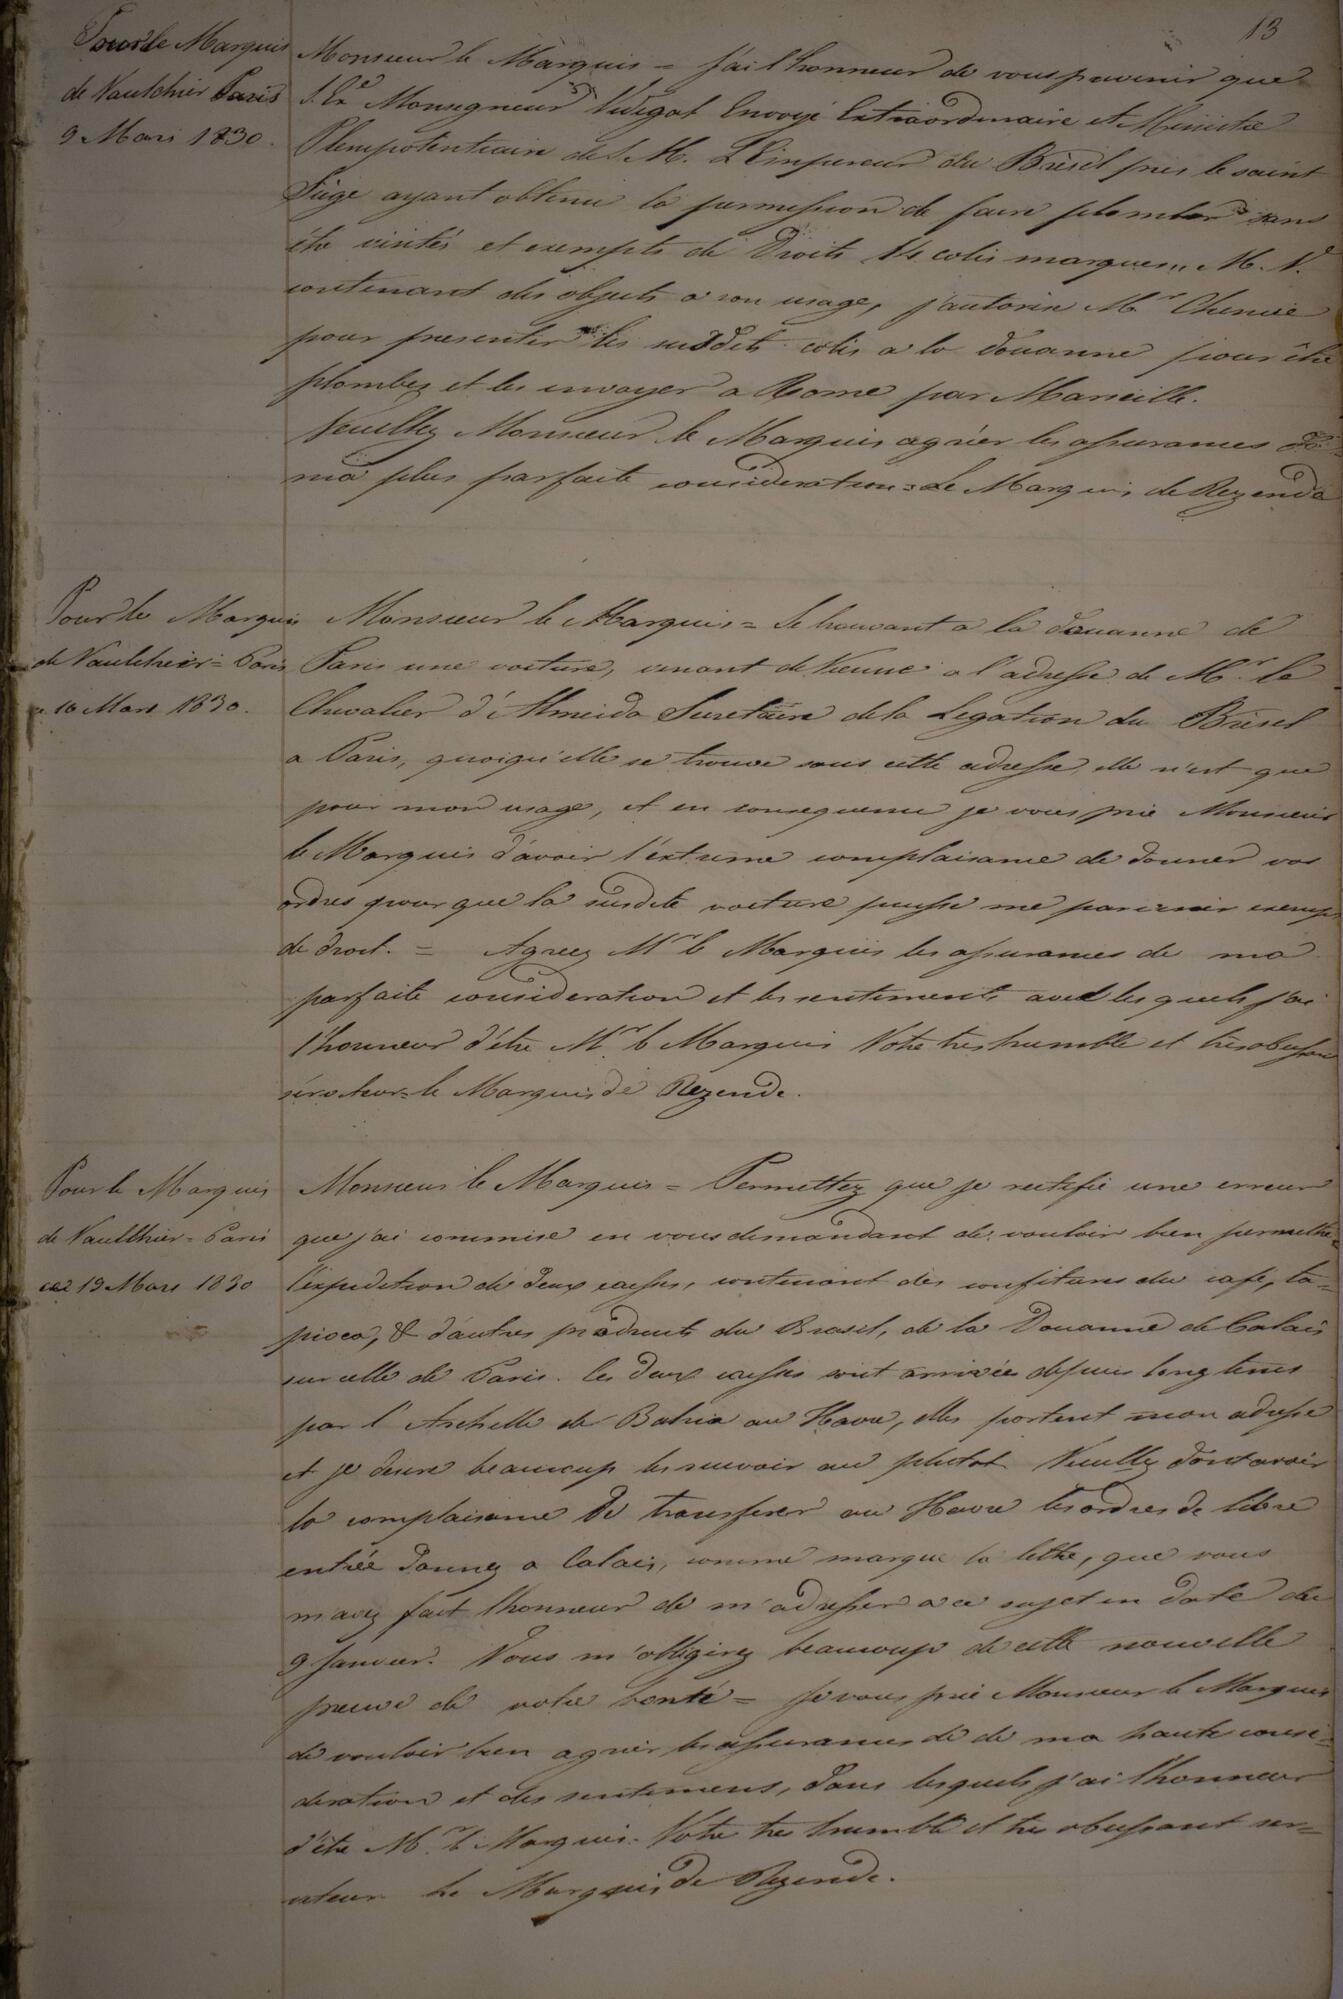 13
Pour le Marquis
de Vaulchier Paris
9 Mars 1830.
Monsieur le Marquis = J'ai l'honneur de vous prevenir que
S. Exe Monsegneur Vidigal Envoyé Extraordinaire et Ministre
Plenipotentiaire de S. M. L'Empereur du Brèsil pres le saint
Siège ayant obtenu la permission de faire plomber sans
être visités et exempts de Droits 14 colis marques,, M. V.
contenant des objects a son usage, j'autorise Mr Chenue
pour presenter les susdits colis a la douanne pour être
plombez et les envoyer a Rome par Marseille.
Veuillez Monsieur le Marquis agréer les assurances de
ma plus parfaite consideration = Le Marquis de Rezende
Pour le Marquis
de Vaulchier = Paris
10 Mars 1830.
Monsieur le Marquis = Se trouvant a la douanne de
Paris une voiture, venant de Vienne a l'adresse de Mr. le
Chevalier d'Almeida Secretaire de la Legation du Brèsil
a Paris, quoiqu'elle se trouve sous cette adresse, elle n'est que
pour mon usage, et en consequence je vous prie Monsieur
le Marquis d'avoir l'extreme complaisance de donner vos
ordres pour que la susdite voiture puisse me parvenir exempt
de droit. = Agreez Mr le Marquis les assurances de ma
parfaite consideration et les sentiments avec les quels j'ai
l'honneur d'être Mr. le Marquis Votre tres humble et très obeissant
serviteur = le Marquis de Rezende.
Pour le Marquis
de Vaulthier = Paris
ce 19 Mars 1830
Monsieur le Marquis = Permettez que je rectifie une erreur
que j'ai commise en vous demandant de vouloir bien permettre
l'expedition de deux caisses, contenant des confitures du cafe, ta-
pioca, & d'autres products du Brasil, de la Douanne de Calais
sur celle de Paris. les deux caisses sont arrivées depuis long tems
par l'Archille de Bahia au Havre, elles portent mon adresse
et je desire beaucoup les recevoir au plutot. Veuillez dont avoir
la complaisance de transferer au Havre les ordres de libre
entrée donnez a Calais, comme marque la lettre, que vous
m'avez fait l'honneur de m'adresser a ce sujet en date du
9 Janvier. Vous m'obligirez beaucoup de cette nouvelle
preuve de votre bonté = Je vous prie Monsieur le Marquis
de vouloir bien agreer les assurances de de ma haute consi-
deration et des sentimens, dans lesquels j'ai l'honneur
d'être Mr. le Marquis. Votre tres humble et tres obeissant ser-
viteur Le Marquis de Rezende.